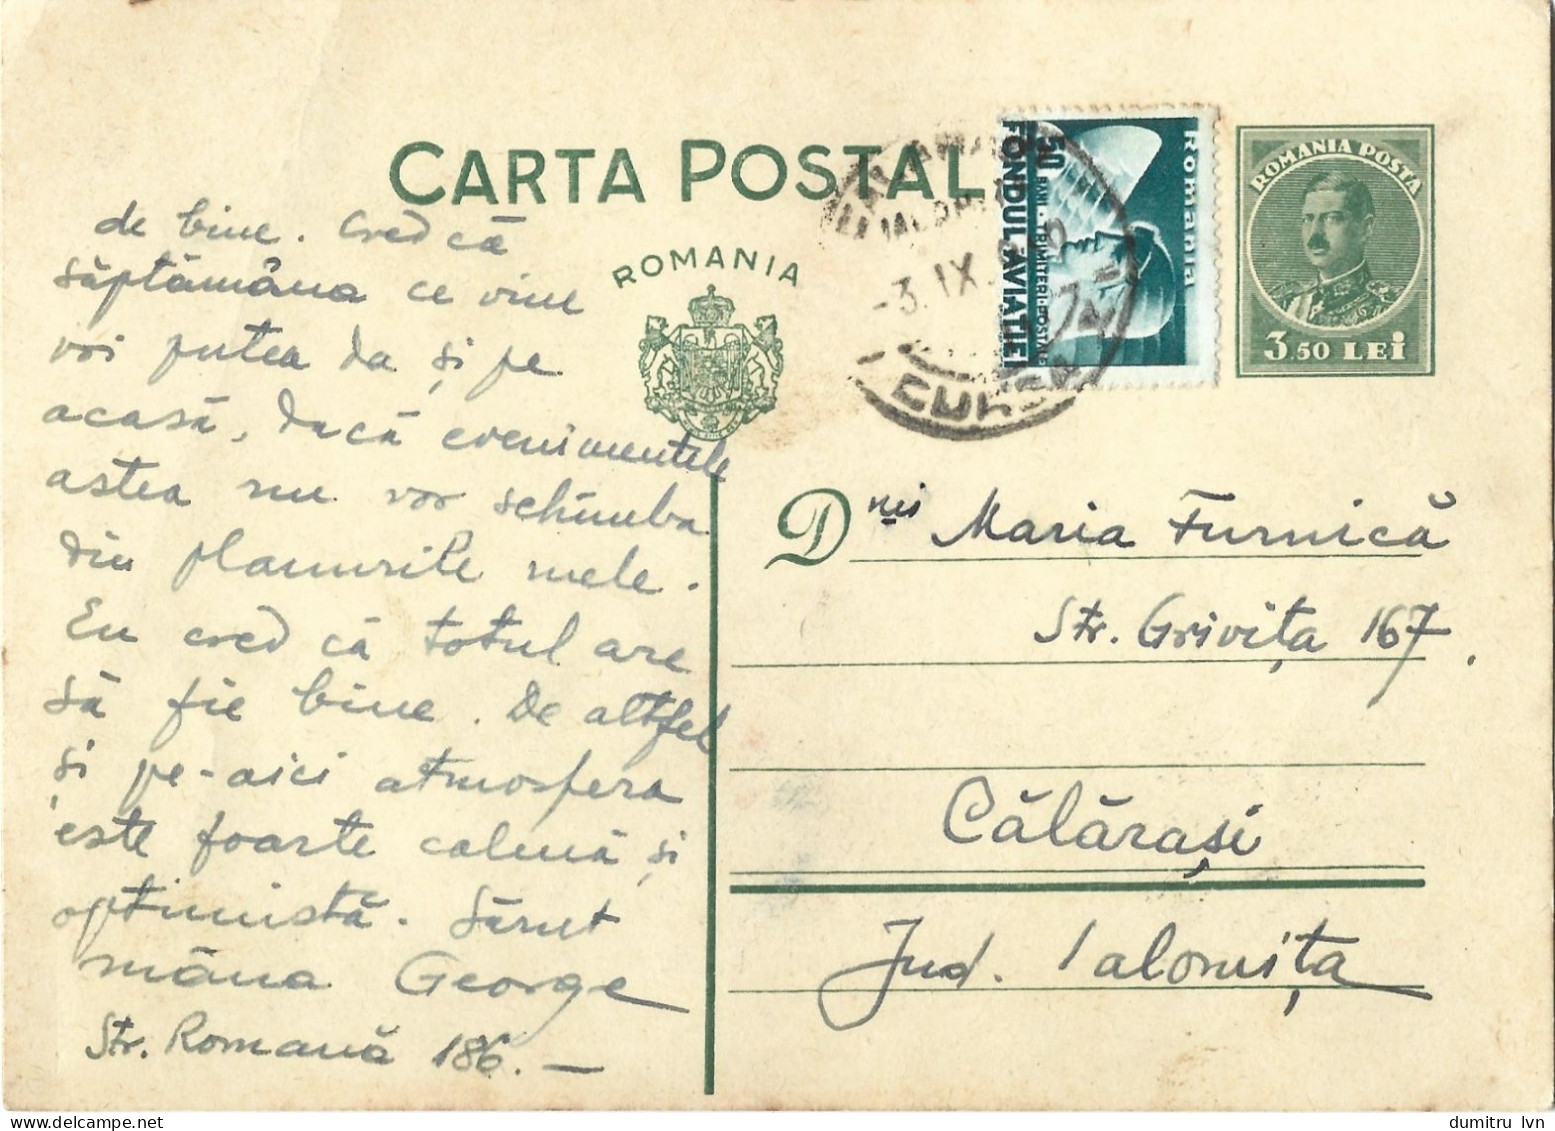 CARTA POSTAL
ROMANIA
de bine. Cred că
săptămâna ce vine
voi putea da și pe
acasă, dacă evenimentele
astea nu vor schimba
din planurile mele.
Eu cred că totul are
să fie bine. De altfel
și pe-aici atmosfera
este foarte calmă și
optimistă. Sărut
mâna George
Str. Romană 186.—
Romania
50 BANI · TRIMITERI·POSTALE
FONDUL AVIATIEI
ROMANIA POSTA
3.50 LEI
-3. IX.
Dnei Maria Furnică
Str. Grivița 167.
Călărași
Jud. Ialomița
dumitru lvn